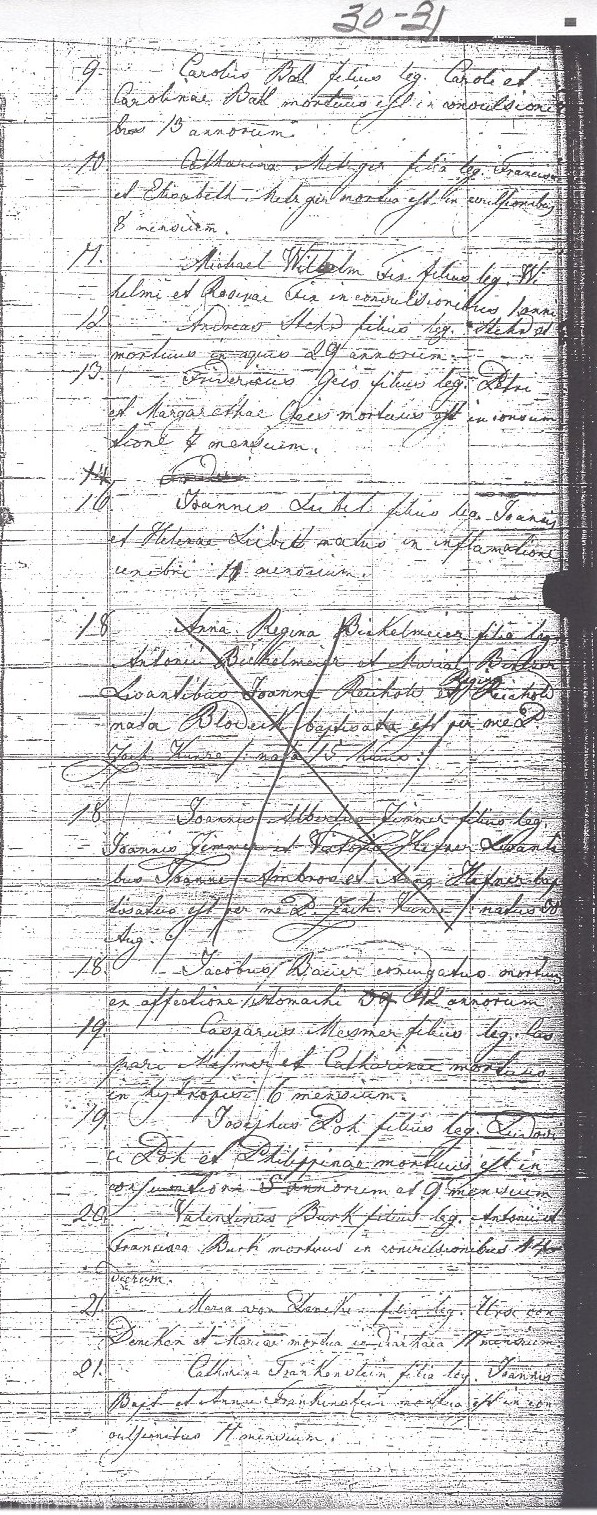 30-31
9. Carolus Ball filius leg. Caroli et
Carolinae Ball mortuus est in convulsioni
bus 13 annorum.
10 Catharina Metzger filia leg. Francisci
et Elisabeth Metzger mortua est in
8 mensium.
11. Michael Wilhelm filius leg. Wi
helmi et Rosinae in convulsionibus 1 anni
12. Andreas Stehr filius leg. Stehr et
mortuus in aquis 29 annorum.
13. Fridericus Geis filius leg. Petri
et Margarethae Geis mortuus est in consum
tione 8 mensium.
14.
16. Joannes Leibel filius leg. Joannis
et Helenae natus in inflamatione
cerebri 11 mensium.
18 Anna Regina Bickelmeier filia leg.
Antonii Bickelmeier et Mariae
Regina
Levantibus Joanne Reichold et Reichold
nata baptisata est per me P.
Zach. Kunze /: nata 15 huius :/
18. Joannes Albertus Zimmer filius leg
Joannis Zimmer et Victoria Hefner Levanti
bus Joanne Ambros et Hefner bap
tisatus est per me P. Zach. Kunze /: natus 30
Aug. :/
18. Jacobus Bauer conjugatus mortuus
ex affectione stomachi 42 annorum
19. Casparus Mesmer filius leg. Cas
pari Mesmer et Catharinae mortuus
in hytropisi 6 mensium.
19 Josephus Poh filius leg. Ludovi
ci Poh et Philippinae mortuus est in
consumtione 5 annorum et 9 mensium
20. Valentinus Burk filius leg. Antonii et
Francisca Burk mortuus in convulsionibus 14
dierum.
21. Maria von filia leg. Urs. von
et Mariae mortua in diarrhaea 11 mensium
21. Catharina Frankenstein filia leg. Joannis
Bapt. et Annae Frankenstein mortua est in con
vulsionibus 11 mensium.